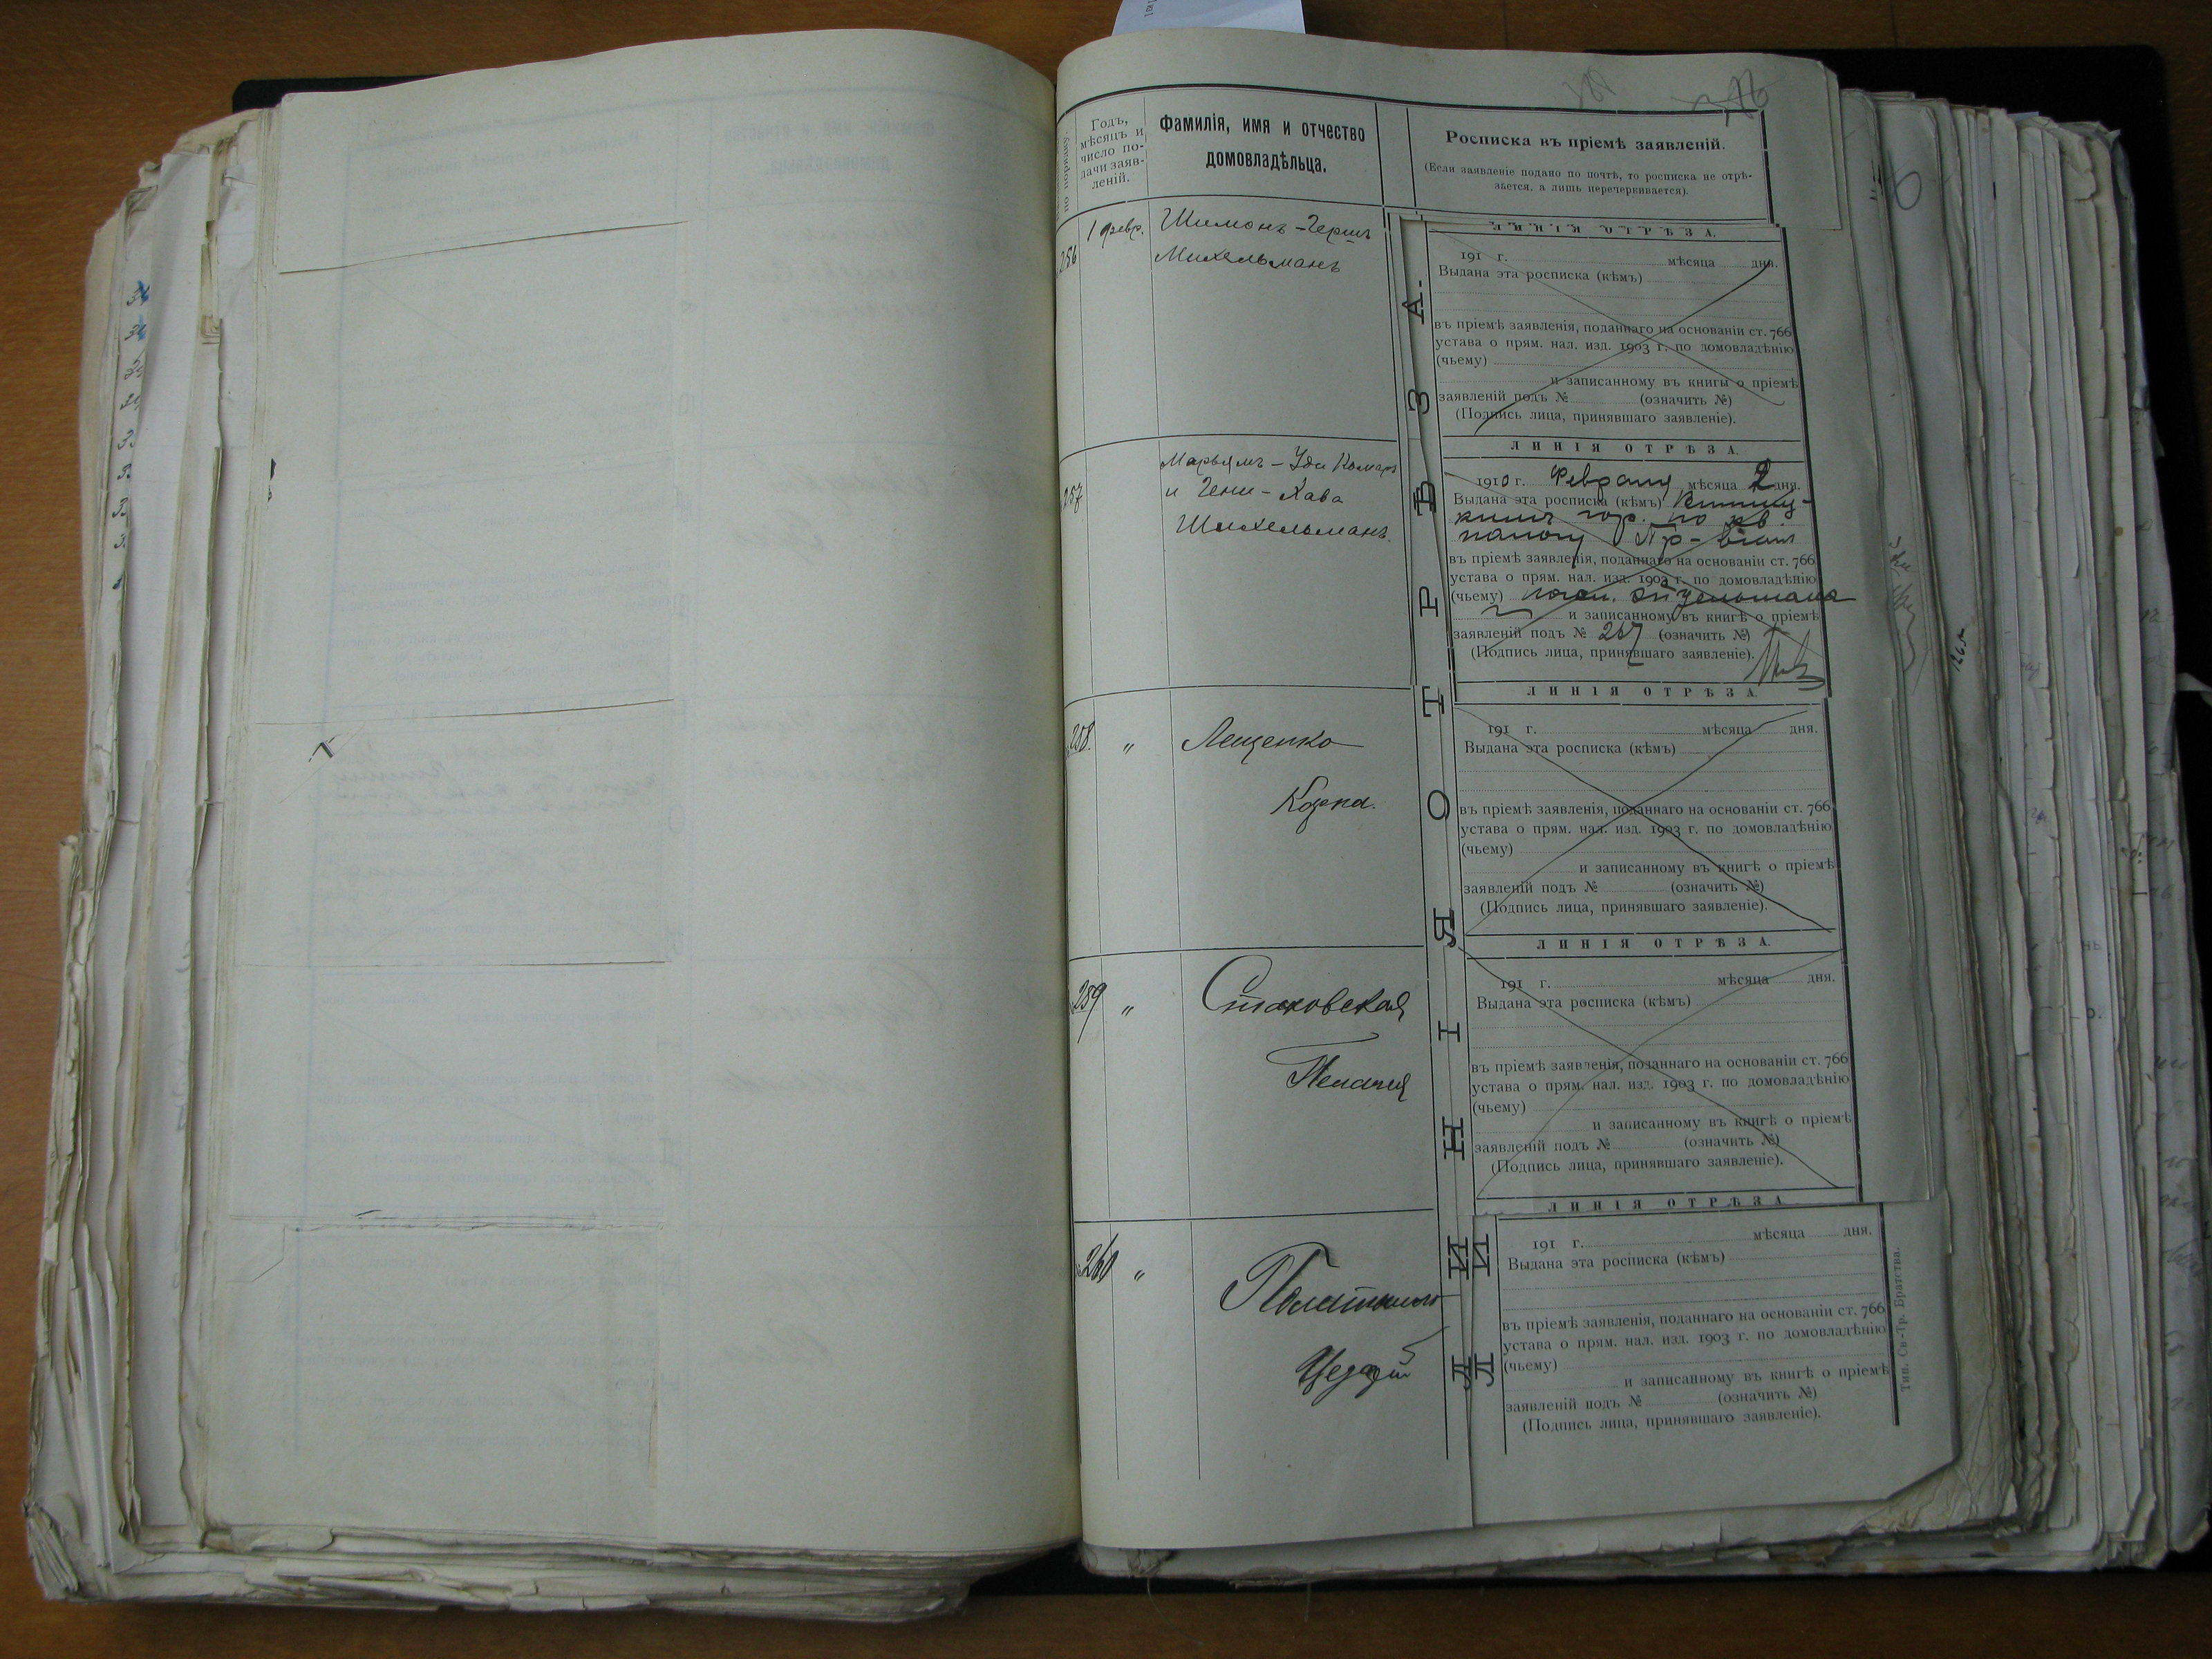 по порядку.
Годъ,
мѣсяцъ и
число по-
дачи заяв-
леній.
Фамилія, имя и отчество
домовладѣльца.
Росписка въ пріемѣ заявленій.
(Если заявленіе подано по почтѣ, то росписка не отрѣ-
зается, а лишь перечеркивается).
256
1 февр.
Шимонъ-Герш
Михельманъ
ЛИНІЯ ОТРѢЗА.
191 г. мѣсяца дня.
Выдана эта росписка (кѣмъ)
въ пріемѣ заявленія, поданнаго на основаніи ст. 766
устава о прям. нал. изд. 1903 г. по домовладѣнію
(чьему)
и записанному въ книгы о пріемѣ
заявленій подъ № (означить №)
(Подпись лица, принявшаго заявленіе).
257
Марьямъ-
и Гени-Хава
Шихельманъ.
ЛИНІЯ ОТРѢЗА.
1910 г. Февраля мѣсяца 2 дня.
Выдана эта росписка (кѣмъ)
гор. по кв.
налогу
въ пріемѣ заявленія, поданнаго на основаніи ст. 766
устава о прям. нал. изд. 1903 г. по домовладѣнію
(чьему)
и записанному въ книгѣ о пріемѣ
заявленій подъ № 257 (означить №)
(Подпись лица, принявшаго заявленіе).
258.
"
Лещенко
Карпа.
ЛИНІЯ ОТРѢЗА.
191 г. мѣсяца дня.
Выдана эта росписка (кѣмъ)
въ пріемѣ заявленія, поданнаго на основаніи ст. 766
устава о прям. нал. изд. 1903 г. по домовладѣнію
(чьему)
и записанному въ книгѣ о пріемѣ
заявленій подъ № (означить №)
(Подпись лица, принявшаго заявленіе).
259
"
Стаховская
Пелагия
ЛИНІЯ ОТРѢЗА.
191 г. мѣсяца дня.
Выдана эта росписка (кѣмъ)
въ пріемѣ заявленія, позаннаго на основаніи ст. 766
устава о прям. нал. изд. 1903 г. по домовладѣнію
(чьему)
и записанному въ книгѣ о пріемѣ
заявленій подъ № (означить №)
(Подпись лица, принявшаго заявленіе).
260
"
Цезарій
ЛИНІЯ ОТРѢЗА
191 г. мѣсяца дня.
Выдана эта росписка (кѣмъ)
въ пріемѣ заявленія, поданнаго на основаніи ст. 766
устава о прям. нал. изд. 1903 г. по домовладѣнію
(чьему)
и записанному въ книгѣ о пріемѣ
заявленій подъ № (означить №)
(Подпись лица, принявшаго заявленіе).
ЛИНІЯ ОТРѢЗА.
Тип. Св.-Тр. Братства.